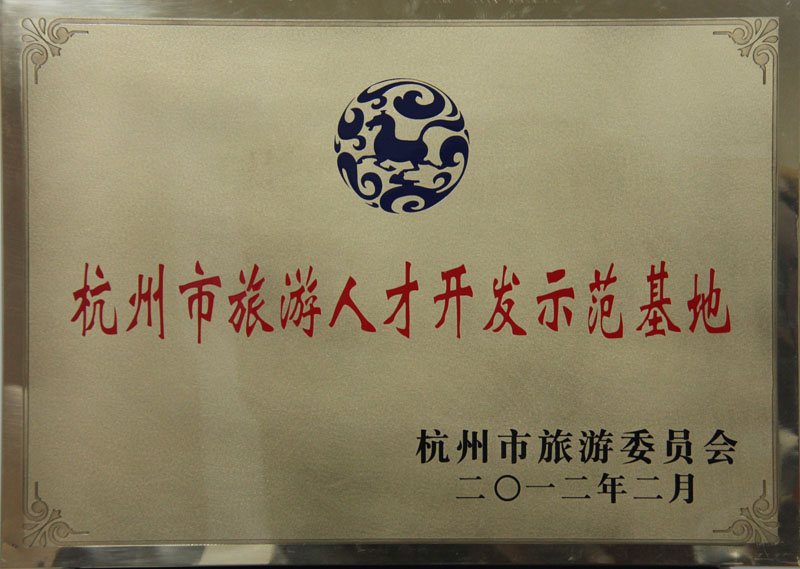 杭州市旅游人才开发示范基地
杭州市旅游委员会
二〇一二年二月